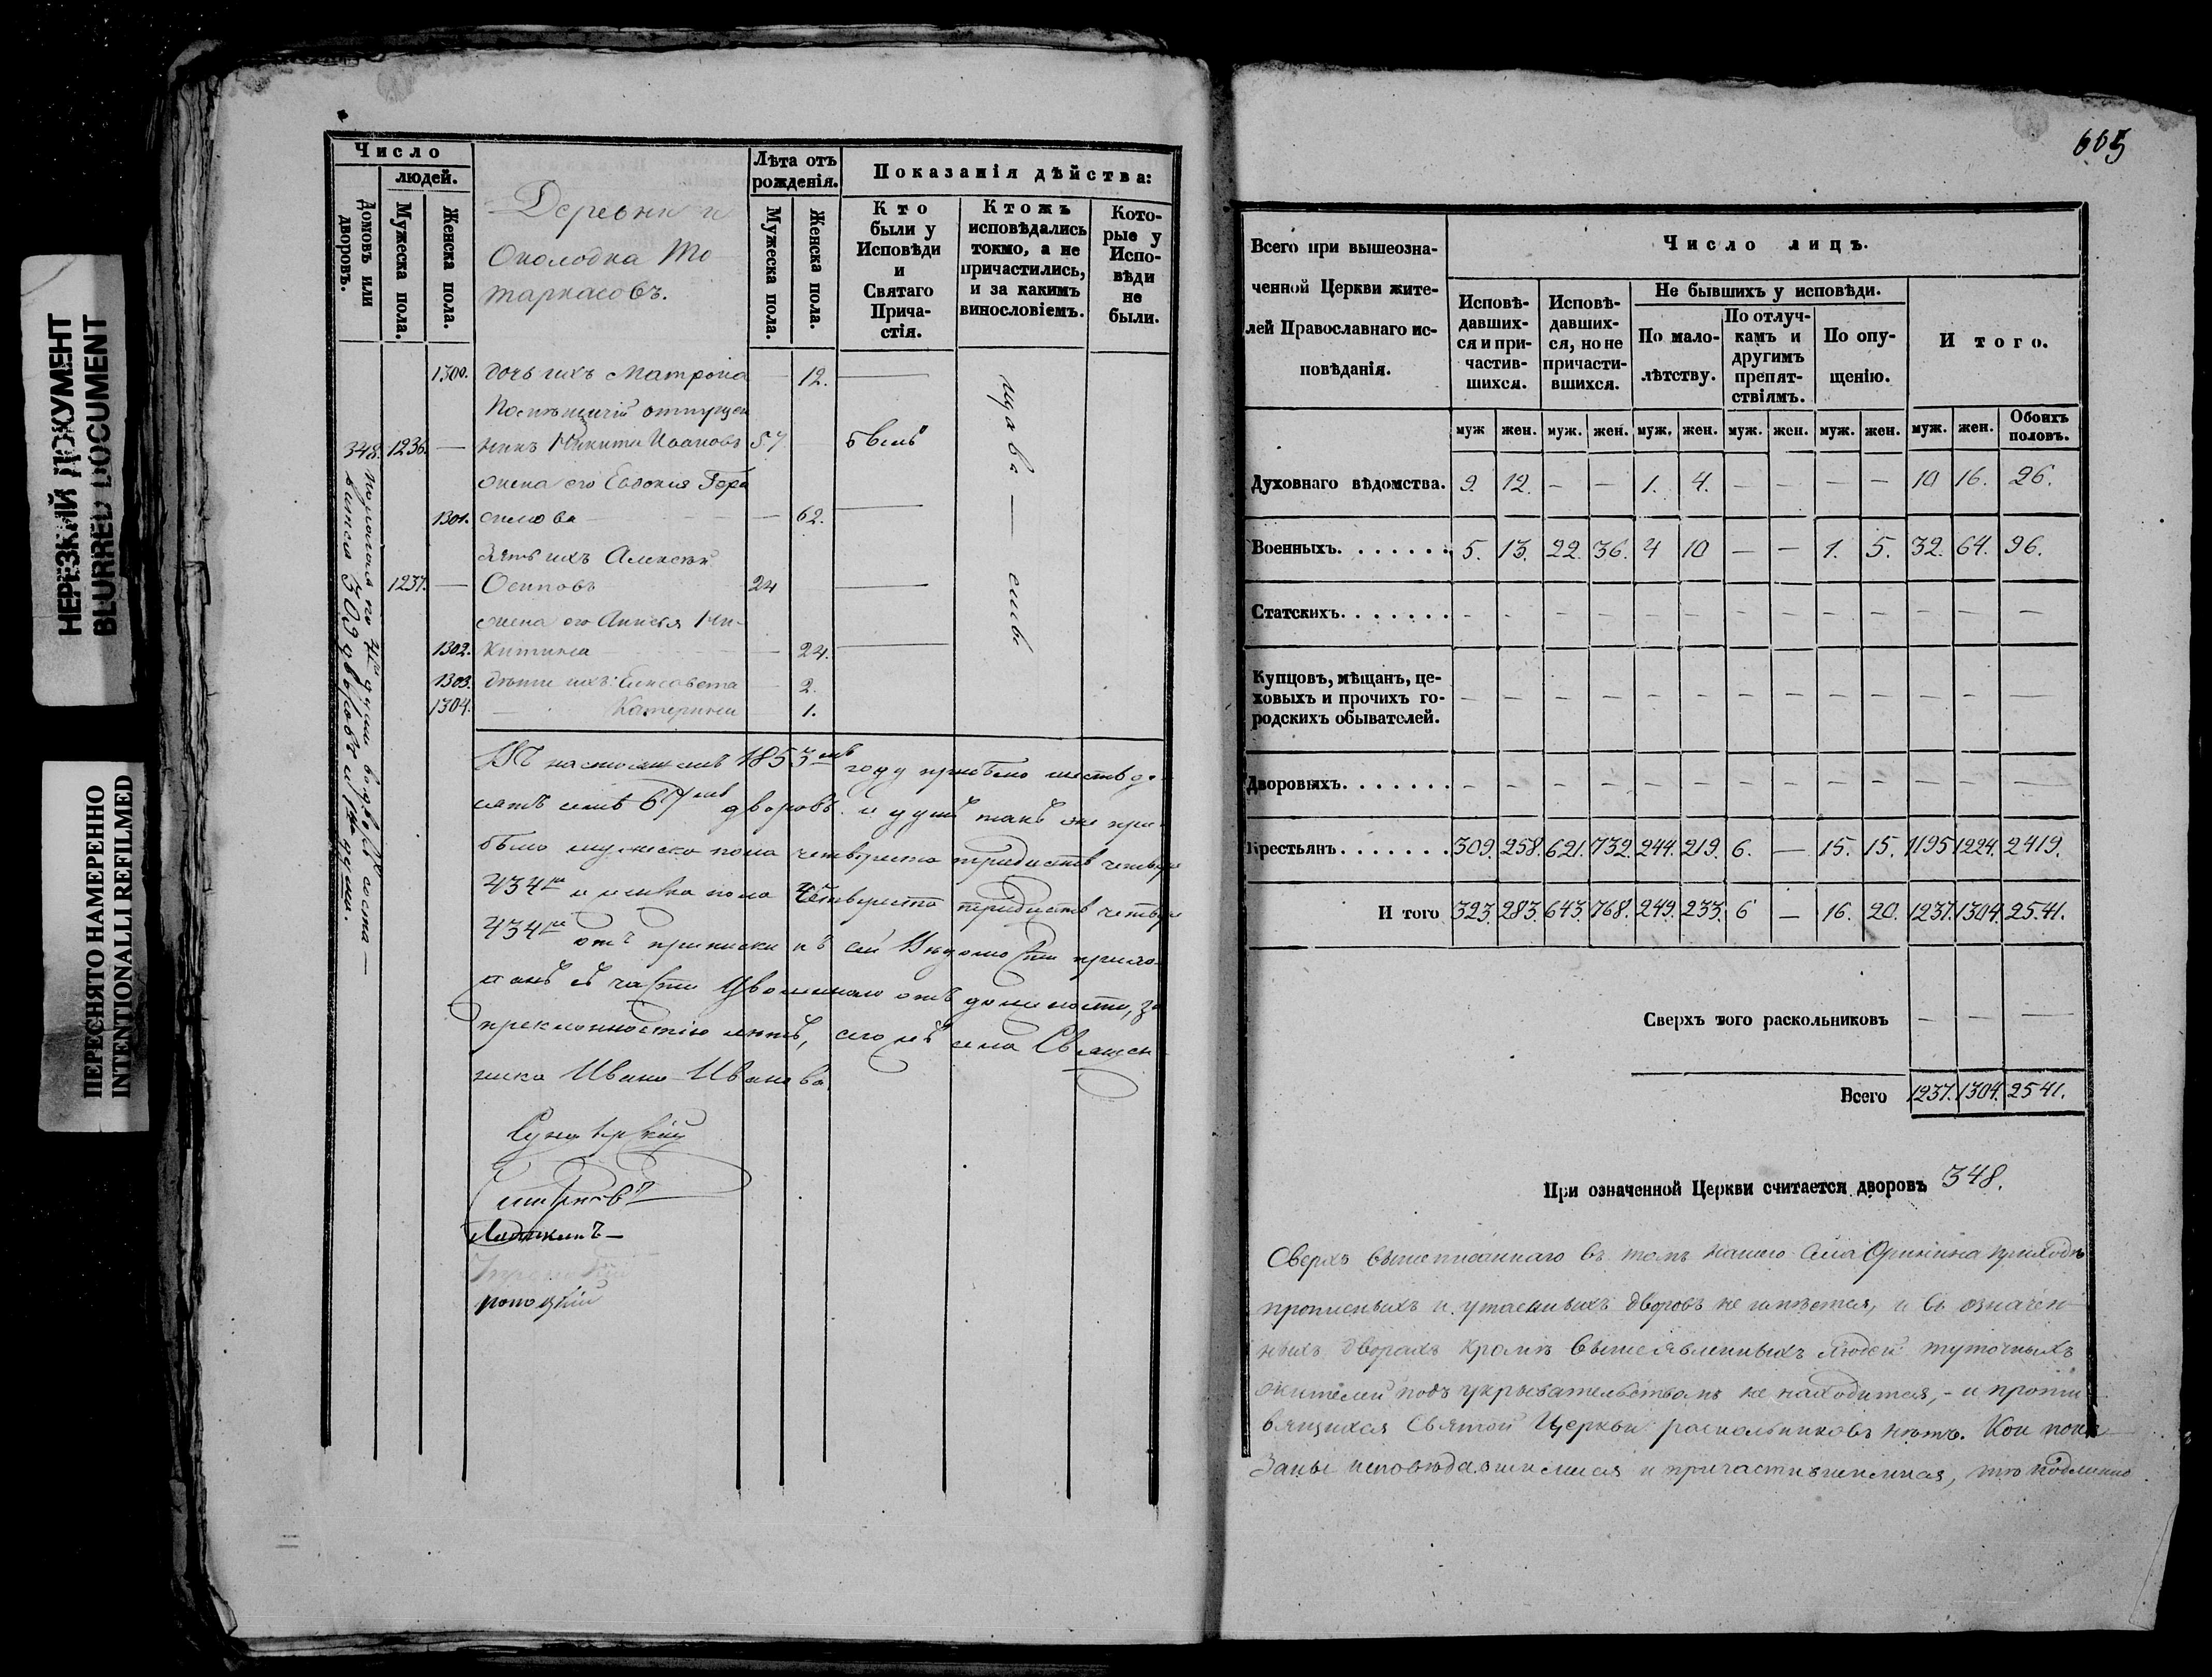 НЕРЕЗКИЙ ДОКУМЕНТ
BLURRED DOCUMENT
ПЕРЕСНЯТО НАМЕРЕННО
INTENTIONALLI REFILMED
Число
людей.
Домовъ или дворовъ.
Мужеска пола.
Женска пола.
Деревни и
Околодка То
таркасовъ.
Лѣта отъ
рожденія.
Мужеска пола.
Женска пола.
Показанія дѣйства:
Кто
были у
Исповѣди
и
Святаго
Прича-
стія.
Ктожъ
исповѣдались
токмо, а не
причастились,
и за какимъ
винословіемъ.
Кото-
рые у
Испо-
вѣди
не
были.
1300. дочь ихъ Матрона — 12. —
348. 1236. — никъ Никита Ивановъ 57 былъ
жена его Евдокия Гера
1301. симова — 62. —
зять ихъ Алексѣй
1237. — Осиповъ 24 —
жена его Анисья Ни-
1302. китина — 24. —
1303. дѣти ихъ: Елисавета — 2.
1304. — Катерина — 1.
Въ настоящемъ 1853мъ году прибыло шестьде-
сятъ семь 67мь дворовъ. и душъ такъ же при-
было мужеска пола четыреста тридцать четыре
434ре и женска пола четыреста тридцать четыре
434ре отъ приписки къ сей Вѣдомости прихо-
жанъ съ части уволеннаго отъ должности, за
преклонностію лѣтъ, сего жъ села Священ-
ника Ивана Иванова.
665
Всего при вышеозна-
ченной Церкви жите-
лей Православнаго ис-
повѣданія.
Число лицъ.
Исповѣ-
давших-
ся и при-
частив-
шихся.
Исповѣ-
давших-
ся, но не
причасти-
вшихся.
Не бывшихъ у исповѣди.
По мало-
лѣтству.
По отлуч-
камъ и
другимъ
препят-
ствіямъ.
По опу-
щенію.
И того.
муж жен. муж. жен. муж. жен. муж. жен. муж. жен. муж. жен. Обоихъ половъ.
Духовнаго вѣдомства. 9. 12. — — 1. 4. — — — — 10 16. 26.
Военныхъ. 5. 13. 22. 36. 4 10 — — 1. 5. 32. 64. 96.
Статскихъ. — — — — — — — — — — — — —
Купцовъ, мѣщанъ, це-
ховыхъ и прочихъ го-
родскихъ обывателей. — — — — — — — — — — — — —
Дворовыхъ. — — — — — — — — — — — — —
Крестьянъ. 309. 258. 621. 732. 244. 219. 6. — 15. 15. 1195 1224. 2419.
И того 323. 283. 643. 768. 249. 233. 6 — 16. 20. 1237. 1304. 2541.
Сверхъ того раскольниковъ — — —
Всего 1237. 1304. 2541.
При означенной Церкви считается дворовъ 348.
Сверхъ вышеписаннаго въ томъ нашего Села Оринина приходѣ
прописныхъ и утаенныхъ дворовъ не имѣется, и въ означен-
ныхъ дворахъ кромѣ вышеявленныхъ людей туточныхъ
жителей подъ укрывательствомъ не находится, - и проти
вящихся Святой Церкви раскольниковъ нѣтъ. Кои пока-
заны исповѣдавшимися и причастившимися, тѣ подлинно